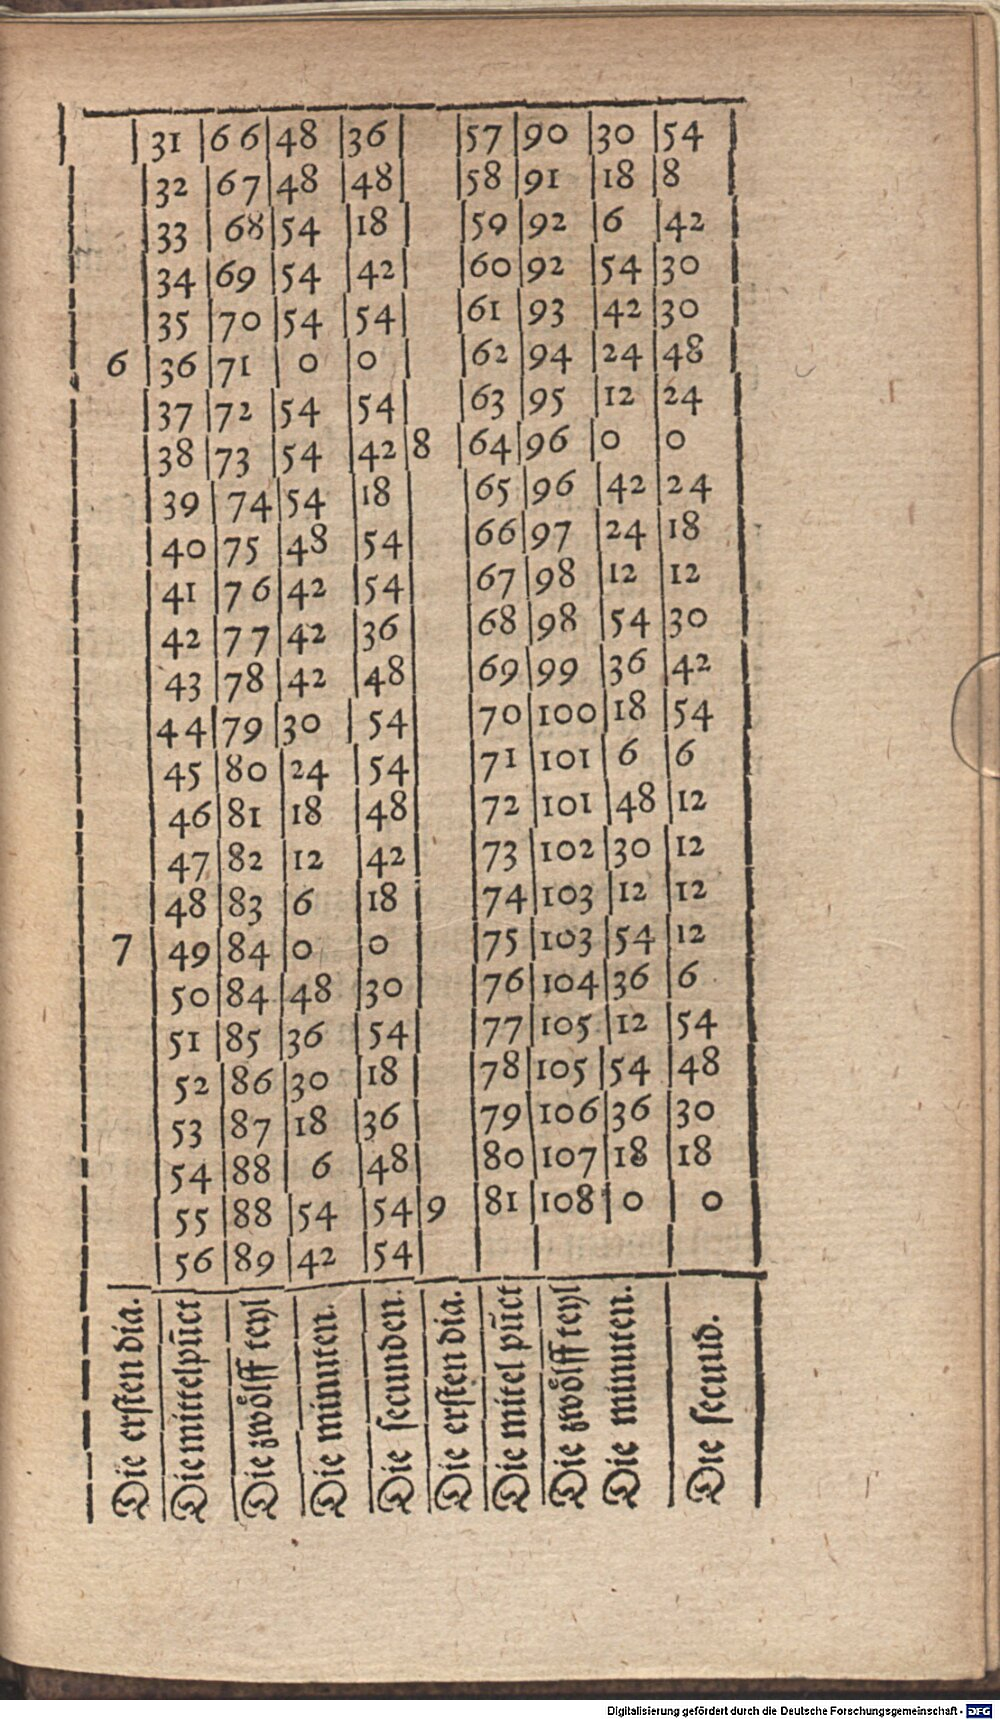 31 66 48 36 57 90 30 54
32 67 48 48 58 91 18 8
33 68 54 18 59 92 6 42
34 69 54 42 60 92 54 30
35 70 54 54 61 93 42 30
6 36 71 0 0 62 94 24 48
37 72 54 54 63 95 12 24
38 73 54 42 8 64 96 0 0
39 74 54 18 65 96 42 24
40 75 48 54 66 97 24 18
41 76 42 54 67 98 12 12
42 77 42 36 68 98 54 30
43 78 42 48 69 99 36 42
44 79 30 54 70 100 18 54
45 80 24 54 71 101 6 6
46 81 18 48 72 101 48 12
47 82 12 42 73 102 30 12
48 83 6 18 74 103 12 12
7 49 84 0 0 75 103 54 12
50 84 48 30 76 104 36 6
51 85 36 54 77 105 12 54
52 86 30 18 78 105 54 48
53 87 18 36 79 106 36 30
54 88 6 48 80 107 18 18
55 88 54 54 9 81 108 0 0
56 89 42 54
Die ersten dia.
Die mittelpūct
Die zwoͤlff teyl
Die minuten.
Die secunden.
Die ersten dia.
Die mitel pūct
Die zwoͤlff teyl
Die minuten.
Die secund.
Digitalisierung gefördert durch die Deutsche Forschungsgemeinschaft - DFG